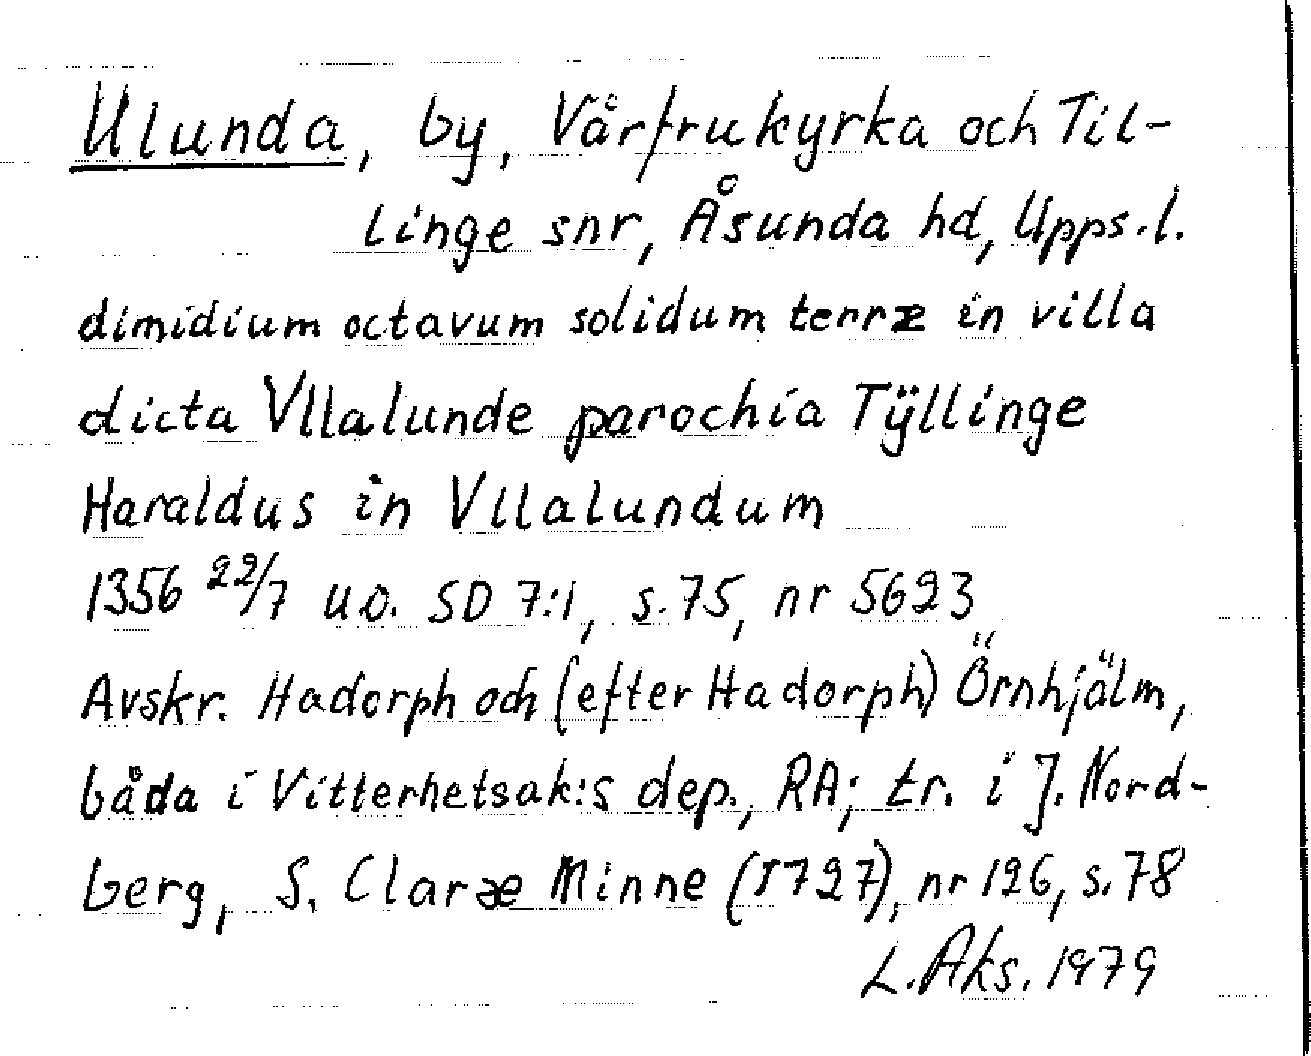 Ulunda, by, Vårfrukyrka och Til-
linge snr, Åsunda hd, Upps.l.
dimidium octavum solidum terræ in villa
dicta Vllalunde parochia Tÿllinge
Haraldus in Vllalundum
1356 22/7 u.o. SD 7:1, s. 75, nr 5623
Avskr. Hadorph och (efter Hadorph) Örnhjälm,
båda i Vitterhetsak:s dep., RA; tr. i J. Nord-
berg, S. Claræ Minne (1727), nr 126, s. 78
L. Aks. 1979